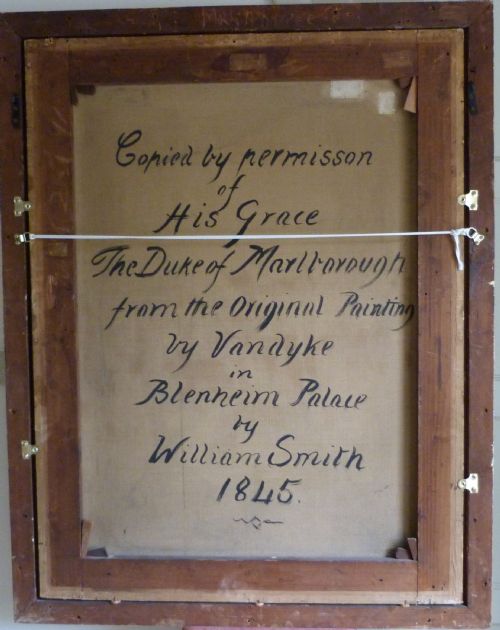 Copied by permisson
of
His Grace
The Duke of Marlborough
from the Original Painting
by Vandyke
in
Blenheim Palace
by
William Smith
1845.